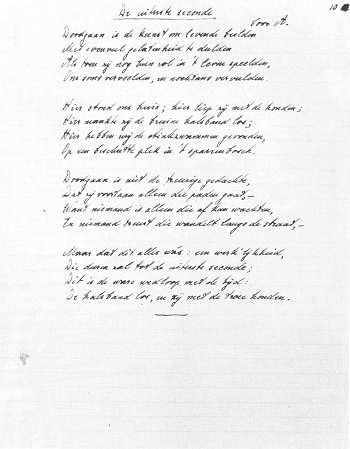 10
De uiterste seconde
Voor A.
Doodgaan is de kunst om levende beelden
Met evenveel gelatenheid te dulden
Als toen zij nog hun rol in 't leven speelden,
Ons soms verveelden, en nochtans vervulden.
Hier stond ons huis; hier liep zij met de honden;
Hier maakte zij de bruine halsband los;
Hier hebben wij de stinkzwammen gevonden,
Op een beschutte plek in 't sparrenbosch.
Doodgaan is niet de treurige gedachte,
Dat zij voortaan alleen die paden gaat, –
Want niemand is alleen die af kan wachten,
En niemand treurt die wandelt langs de straat, –
Maar dat dit alles wàs: een werk'lijkheid,
Die duren zal tot de uiterste seconde;
Dit is de ware wedloop met de tijd:
De halsband los, en zij met de twee honden.